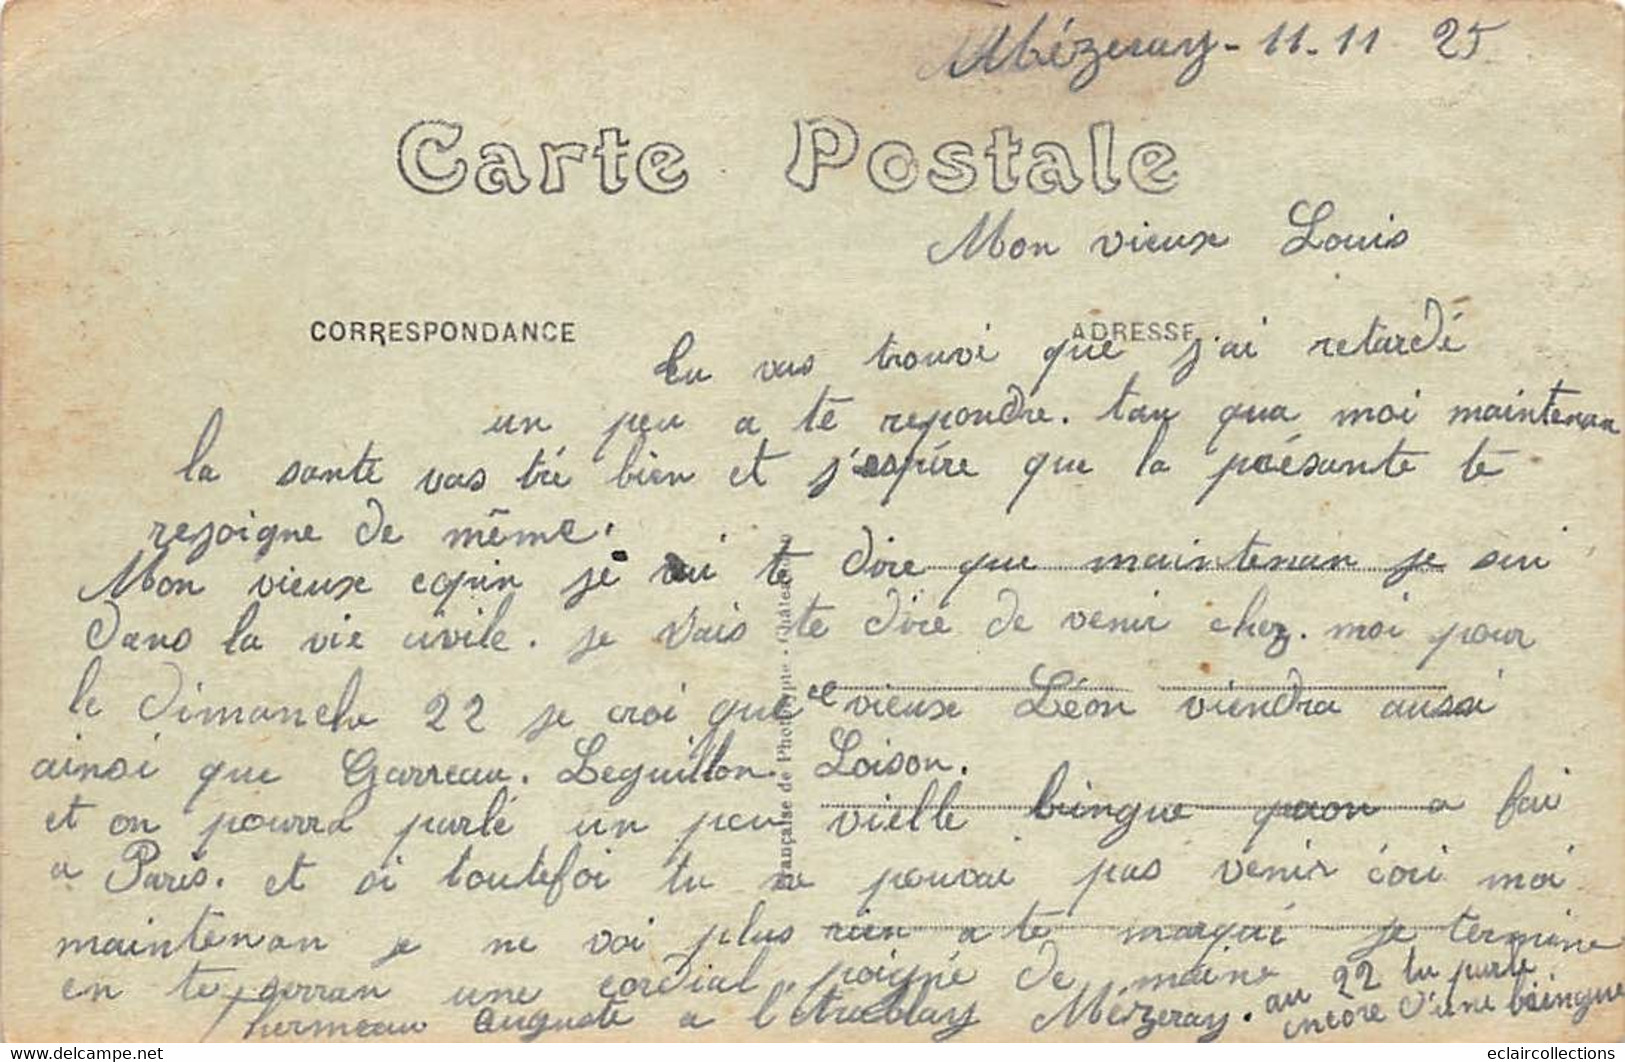 Mézeray - 11.11 25
Carte Postale
Mon vieux Louis
CORRESPONDANCE
ADRESSE
tu vas trouvé que j'ai retardé
un peu a te repondre. tan qua moi maintenan
la sante vas tré bien et j'espére que la poésante te
rejoigne de même.
Mon vieux copin je vai te dire que maintenan je sui
dans la vie civile. je vais te dire de venir chez. moi pour
le dimanche 22 je croi que ce vieux Léon viendra aussi
ainsi que Garreau. Leguillon. Loison.
et on pourra parlé un peu vielle bringue quon a fai
a Paris. et si toutefoi tu ne pouvai pas venir écri moi
maintenan je ne voi plus rien a te marqué je termine
en te serran une cordial poigné de maine
au 22 tu parle
encore d'une bringue
Thermeau Auguste a l'Mézeray.
française de Phototypie - Château
eclaircollections